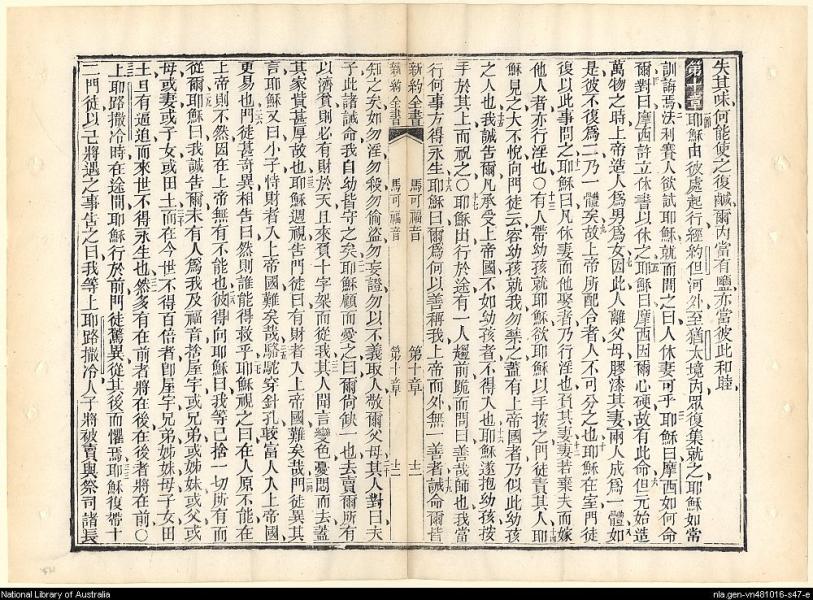 失其味何能使之復鹹爾內當有鹽亦當彼此和睦
第十章 耶穌由彼處起行經約但河外至猶太境內眾復集就之耶穌如常
訓誨焉法利賽人欲試耶穌就而問之曰人休妻可乎耶穌曰摩西如何命
爾對曰摩西許立休書以休之耶穌曰摩西因爾心硬故有此命但元始造
萬物之時上帝造人爲男爲女因此人離父母膠漆其妻兩人成爲一體如
是彼不復爲二乃一體矣故上帝所配合者人不可分之也耶穌在室門徒
復以此事問之耶穌曰凡休妻而他娶者乃行淫也負其妻妻若棄夫而嫁
他人者亦行淫也〇有人帶幼孩就耶穌欲耶穌以手按之門徒責其人耶
穌見之大不悅向門徒云容幼孩就我勿禁之蓋有上帝國者乃似此幼孩
之人也我誠告爾凡承受上帝國不如幼孩者不得入也耶穌遂抱幼孩按
手於其上而祝之〇耶穌出行於途有一人趨前跪而問曰善哉師也我當
行何事方得永生耶穌曰爾爲何以善稱我上帝而外無一善者誡命爾皆
新約全書 馬可福音 第十章 十二
新約全書 馬可福音 第十章 十二
知之矣如勿淫勿殺勿偷盜勿妄證勿以不義取人敬爾父母其人對曰夫
子此諸誡命我自幼皆守之矣耶穌顧而愛之曰爾尙缺一也去賣爾所有
以濟貧則必有財於天且來負十字架而從我其人聞言變色憂悶而去蓋
其家貲甚厚故也耶穌週視告門徒曰有財者入上帝國難矣哉門徒異其
言耶穌又曰小子恃財者入上帝國難矣哉駱駝穿針孔較富人入上帝國
更易也門徒甚奇異相告曰然則誰能得救乎耶穌視之曰在人原不能在
上帝則不然因在上帝無有不能也彼得向耶穌曰我等已捨一切所有而
從爾耶穌曰我誠告爾未有人爲我及福音捨屋宇或兄弟或姊妹或父或
母或妻或子女或田土而在今世不得百倍者卽屋宇兄弟姊妹母子女田
土且有逼迫而來世不得永生也然多有在前者將在後在後者將在前〇
上耶路撒冷時在途間耶穌行於前門徒驚異從其後而懼焉耶穌復帶十
二門徒以己將遇之事告之曰我等上耶路撒冷人子將被賣與祭司諸長
National Library of Australia
nla.gen-vn481016-s47-e